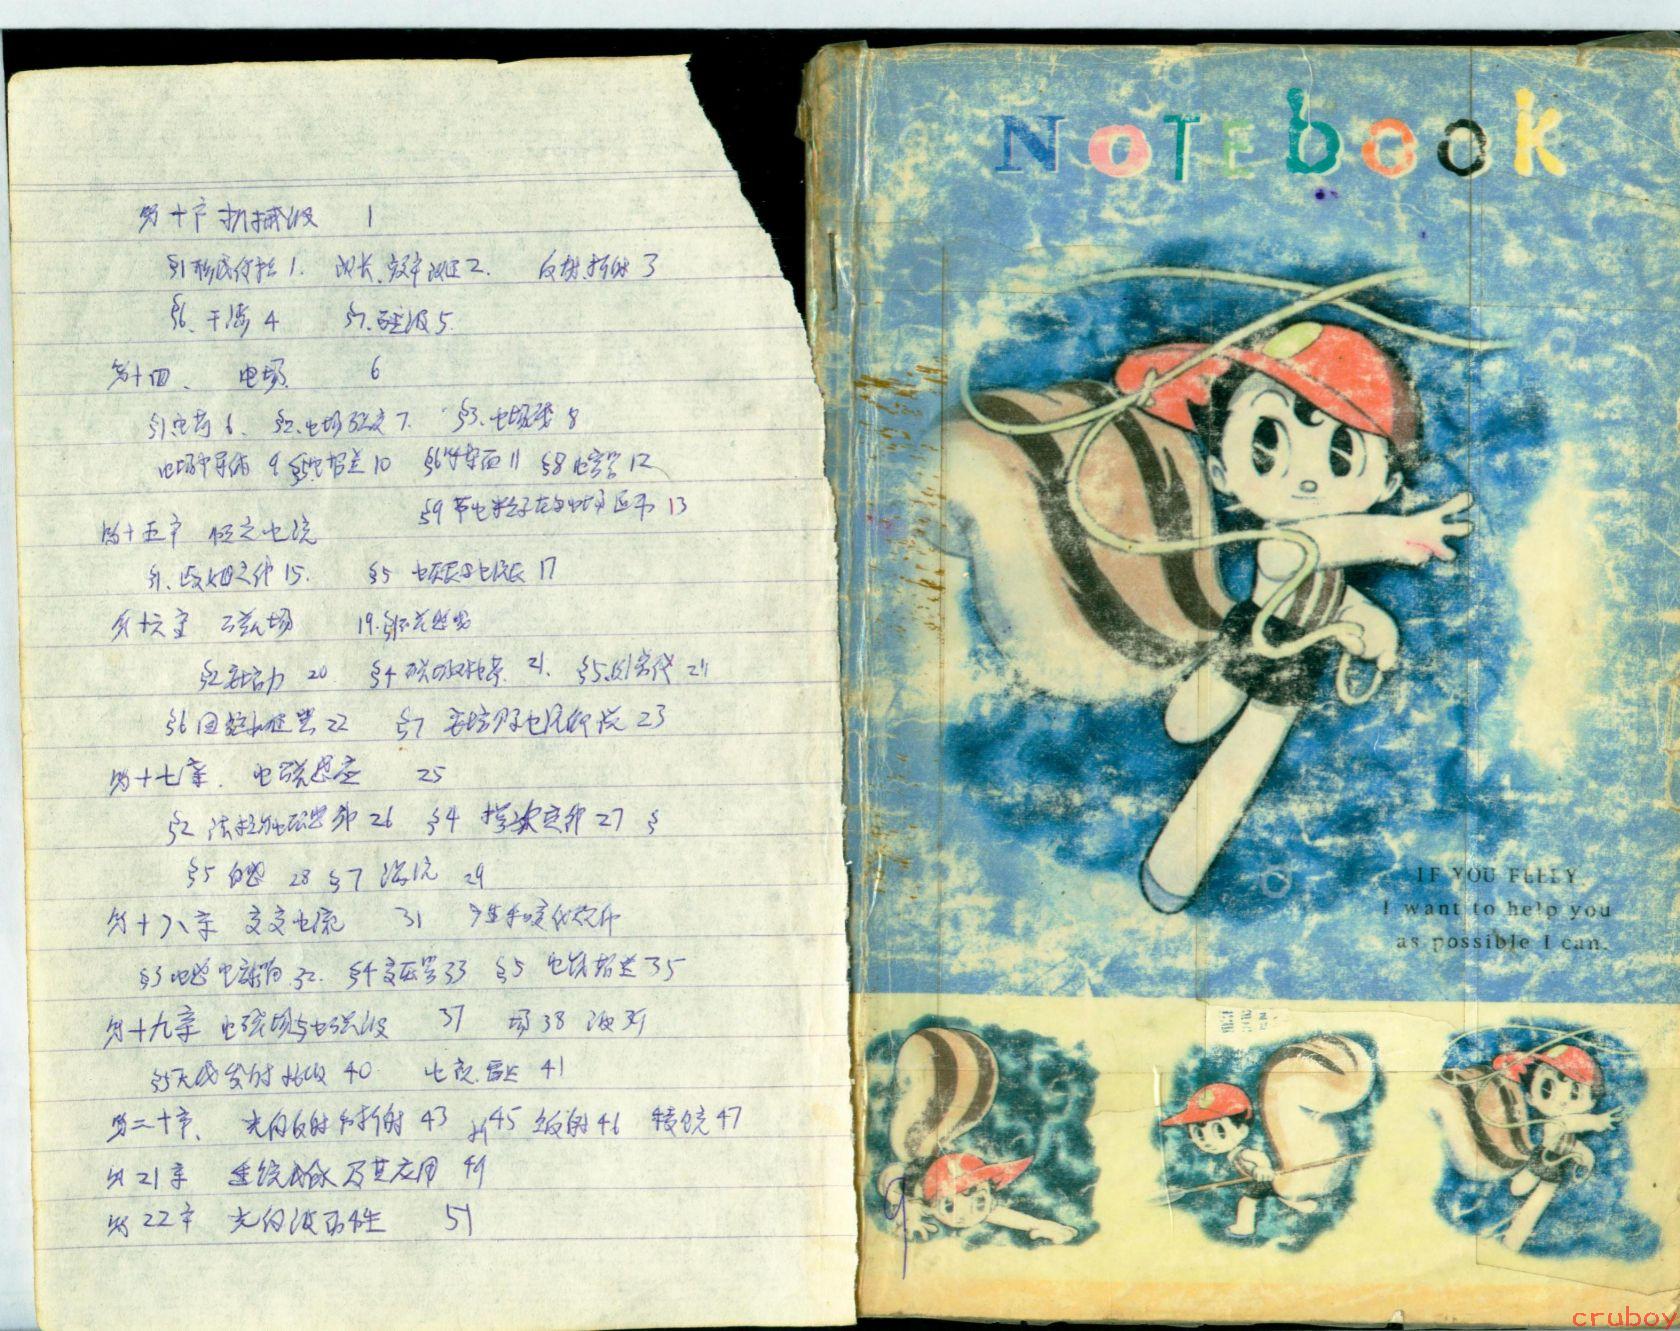 第十章 机械波 1
§1形成传播 1. 波长.频率 波速 2. 反射.折射 3
§6. 干涉 4 §7. 5
第十四. 电场 6
§1电荷 6. §2.电场强度 7. §3.电场线 8
电场中导体 9 §5电势差 10 §6等势面 11 §8电容器 12
§9 带电粒子在匀电场 13
第十五章 恒定电流
§1.欧姆定律 15. §5 17
第十六章 磁场 19.
§2安培力 20 §4 21. §5. 21
§6 回旋加速器 22 §7 安培分子电流假说 23
第十七章. 电磁感应 25
§2 法拉第电磁感 律 26 §4 楞次定律 27 §
§5 自感 28 §7 涡流 29
第十八章 交变电流 31
§3 电感电容 32. §4变压器 33 §5 35
第十九章 电磁场与电磁波 37 场 38 波 39
§5无线发射接收 40 电视.雷达 41
第二十章. 光的反射和折射 43 折45 全反射 46 棱镜 47
第21章 透镜成像及其应用 49
第22章 光的波动性 51
NOTEbOOK
IF YOU FEELY
I want to help you
as possible I can.
9
cruboy